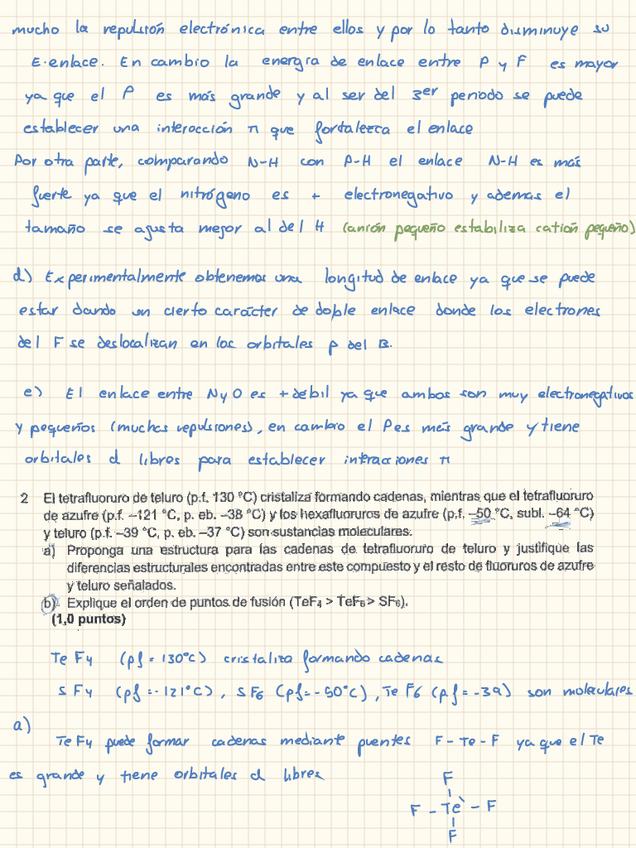 mucho la repulsión electrónica entre ellos y por lo tanto disminuye su
E.enlace. En cambio la energía de enlace entre P y F es mayor
ya que el P es más grande y al ser del 3er periodo se puede
establecer una interacción π que fortalezca el enlace
Por otra parte, comparando N-H con P-H el enlace N-H es más
fuerte ya que el nitrógeno es + electronegativo y ademas el
tamaño se ajusta mejor al del H (anión pequeño estabiliza catión pequeño)
d) Experimentalmente obtenemos una longitud de enlace ya que se puede
estar dando un cierto carácter de doble enlace donde los electrones
del F se deslocalizan en los orbitales p del B.
e) El enlace entre N y O es + débil ya que ambos son muy electronegativos
y pequeños (muchas repulsiones), en cambio el P es más grande y tiene
orbitales d libres para establecer interacciones π
2 El tetrafluoruro de teluro (p.f. 130 °C) cristaliza formando cadenas, mientras que el tetrafluoruro
de azufre (p.f. –121 °C, p. eb. –38 °C) y los hexafluoruros de azufre (p.f. –50 °C, subl. –64 °C)
y teluro (p.f. –39 °C, p. eb. –37 °C) son sustancias moleculares.
a) Proponga una estructura para las cadenas de tetrafluoruro de teluro y justifique las
diferencias estructurales encontradas entre este compuesto y el resto de fluoruros de azufre
y teluro señalados.
b) Explique el orden de puntos de fusión (TeF4 > TeF6 > SF6).
(1,0 puntos)
Te F4 (pf = 130°C) cristaliza formando cadenas
S F4 (pf = -121°C), SF6 (pf = -50°C), Te F6 (pf = -39) son moleculares
a)
Te F4 puede formar cadenas mediante puentes F - Te - F ya que el Te
es grande y tiene orbitales d libres
F
F - Te - F
F